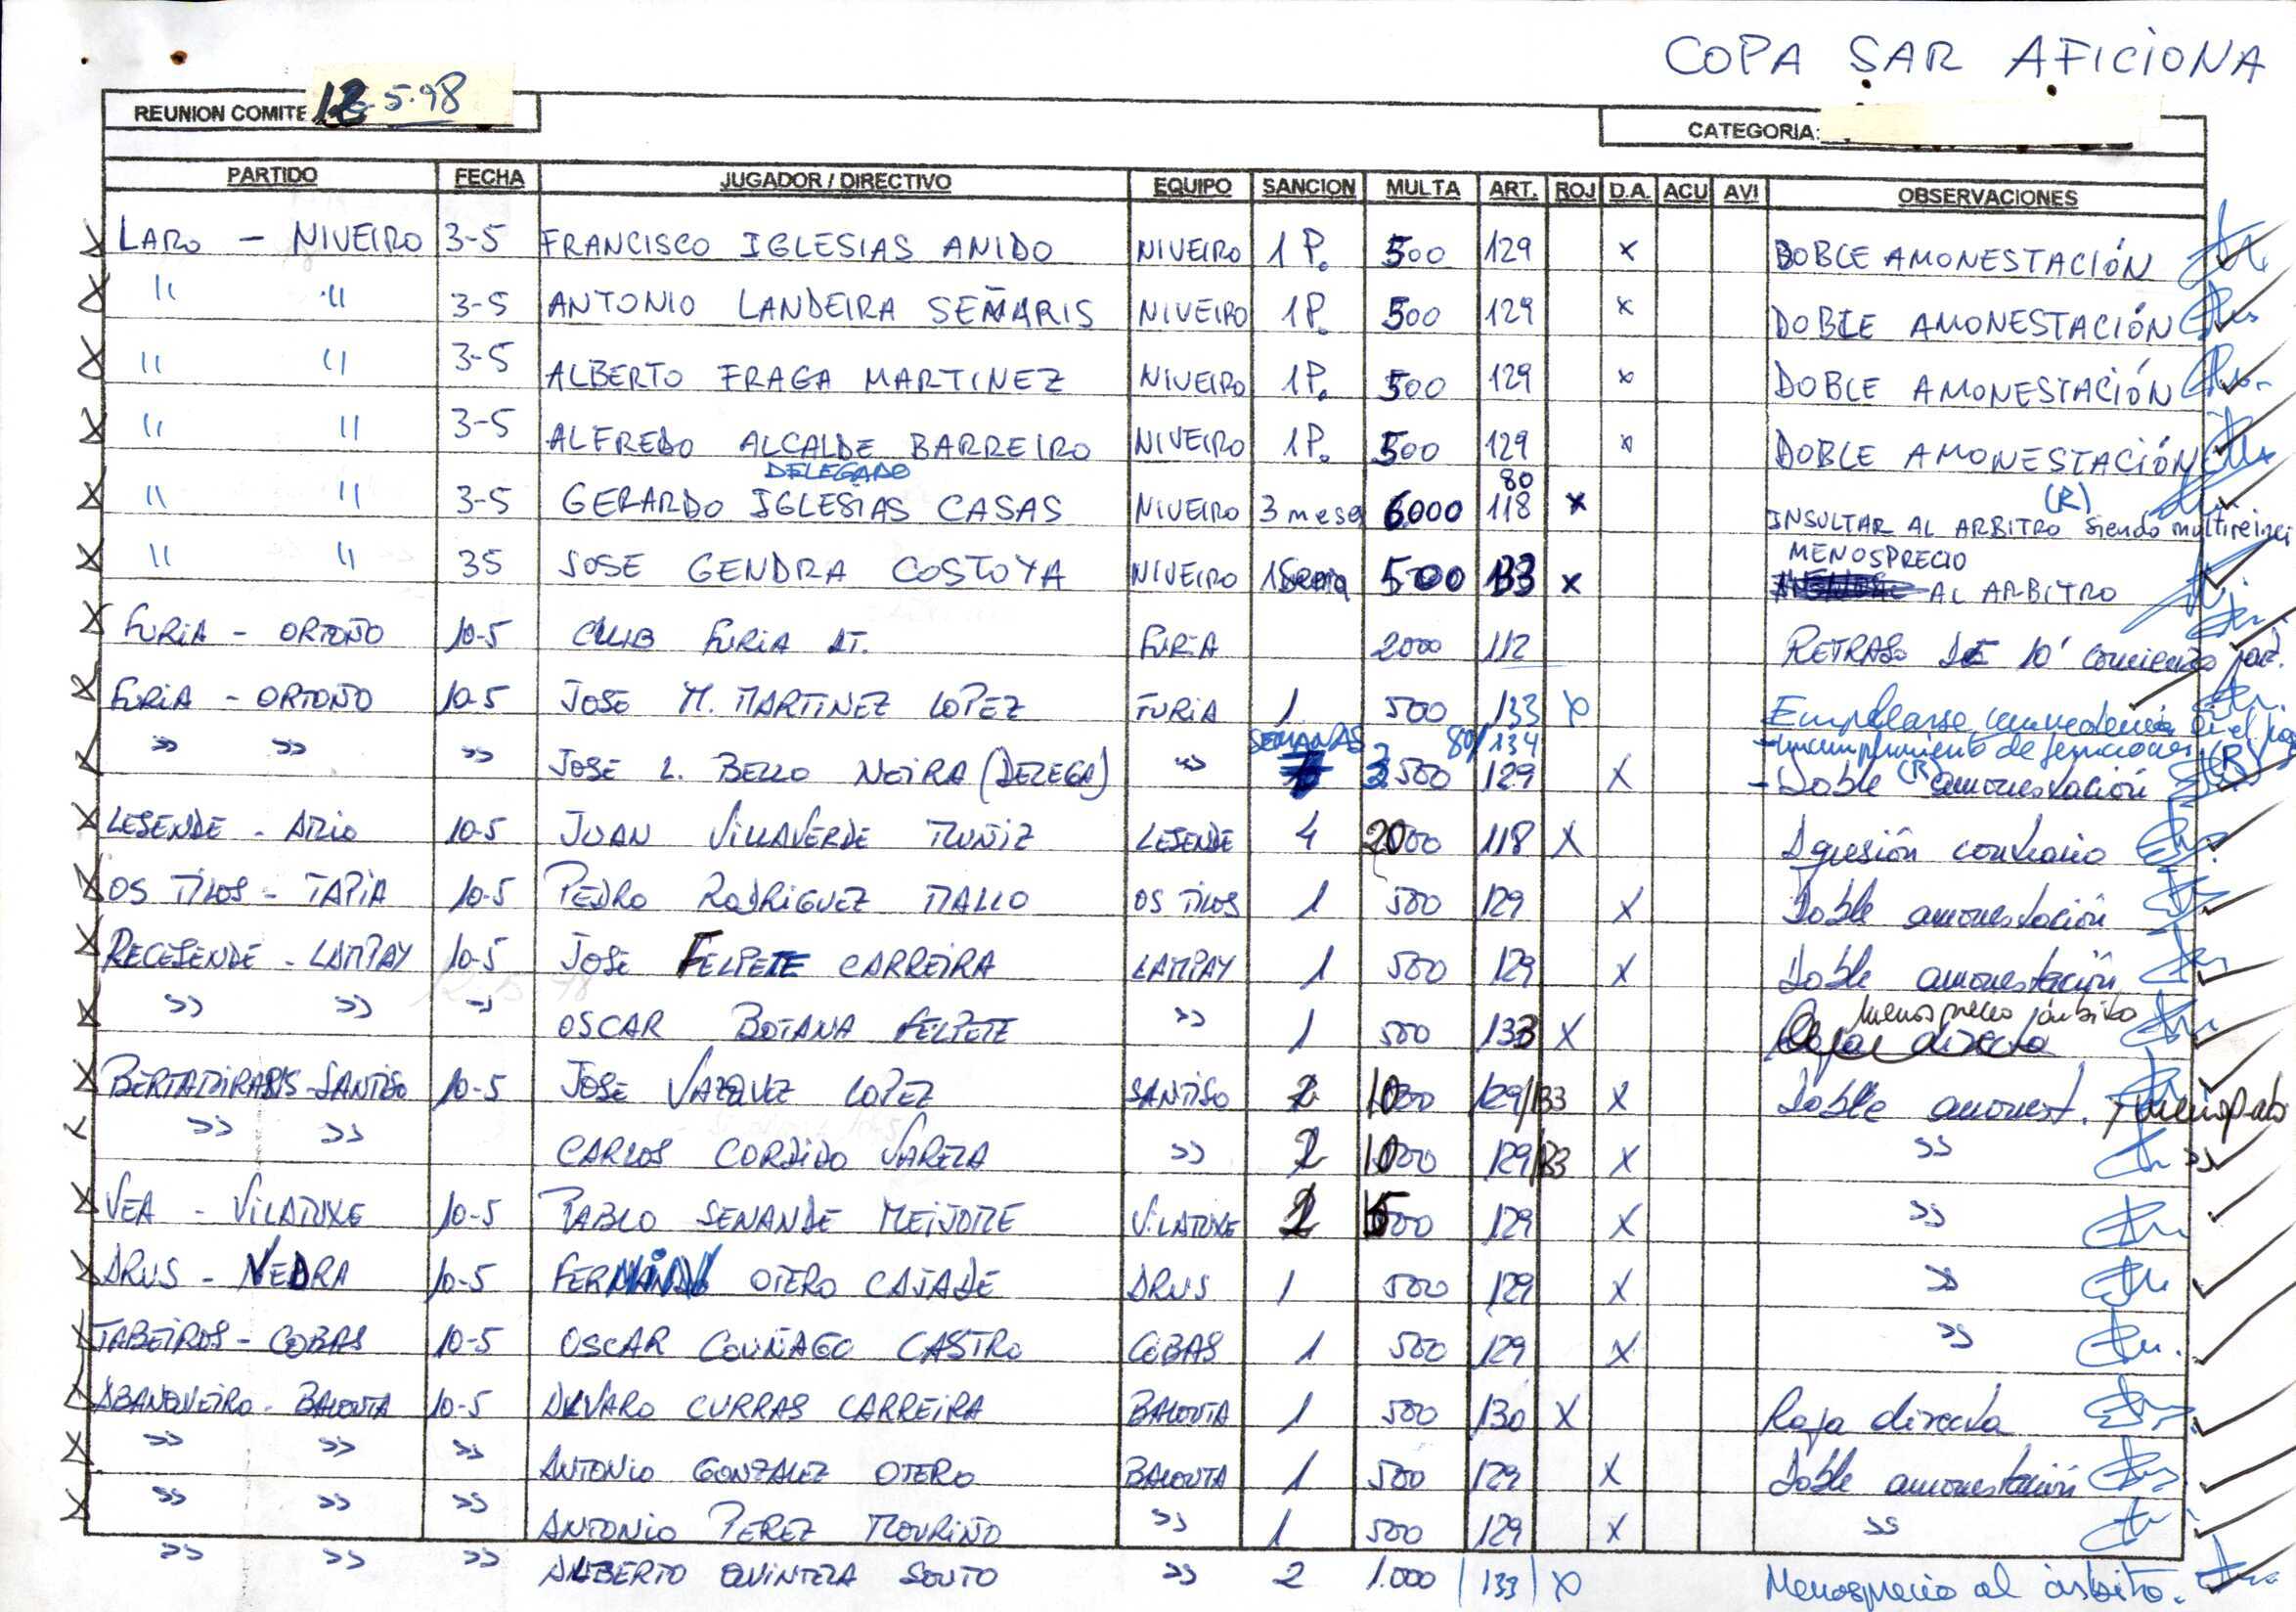 COPA SAR AFICIONA
REUNION COMITE 12-5-98
CATEGORIA:
PARTIDO FECHA JUGADOR / DIRECTIVO EQUIPO SANCION MULTA ART. ROJ D.A. ACU AVI OBSERVACIONES
LARO - NIVEIRO 3-5 FRANCISCO IGLESIAS ANIDO NIVEIRO 1 P. 500 129 x DOBLE AMONESTACIÓN
" " 3-5 ANTONIO LANDEIRA SEÑARIS NIVEIRO 1P. 500 129 x DOBLE AMONESTACIÓN
" " 3-5 ALBERTO FRAGA MARTINEZ NIVEIRO 1P. 500 129 x DOBLE AMONESTACIÓN
" " 3-5 ALFREDO ALCALDE BARREIRO NIVEIRO 1P. 500 129 x DOBLE AMONESTACIÓN
DELEGADO 80 (R)
" " 3-5 GERARDO IGLESIAS CASAS NIVEIRO 3 meses 6000 118 x INSULTAR AL ARBITRO siendo multireinci
MENOSPRECIO
" " 35 JOSE GENDRA COSTOYA NIVEIRO 500 133 x AL ARBITRO
FURIA - ORTOÑO 10-5 CLUB FURIA AT. FURIA 2000 112 RETRASO DE 10' comienzo part.
FURIA - ORTOÑO 10-5 JOSE M. MARTINEZ LOPEZ FURIA 1 500 133 x Emplearse
SEMANAS 80/134 -incumplimiento de funciones (R)
>> >> >> JOSE L. BELLO NEIRA (DELEGA) >> 3500 129 x - Doble amonestación (R)
LESENDE - ARIO 10-5 JUAN VILLAVERDE MUÑIZ LESENDE 4 2000 118 x Agresión contrario
OS TILOS - TAPIA 10-5 PEDRO RODRIGUEZ MALLO OS TILOS 1 500 129 x Doble amonestación
RECESENDE - LAMPAY 10-5 JOSE FELPETE CARREIRA LAMPAY 1 500 129 x Doble amonestación
Menosprecio árbitro
>> >> >> OSCAR BOTANA FELPETE >> 1 500 133 x Roja directa
BERTAMIRANS - SANTISO 10-5 JOSE VAZQUEZ LOPEZ SANTISO 2 1000 129/133 x Doble amonest. y
>> >> CARLOS CORDIDO VARELA >> 2 1000 129/133 x >> >>
VEA - VILATUXE 10-5 PABLO SENANDE MEIJOME VILATUXE 500 129 x >>
ARNS - VEDRA 10-5 FERNANDO OTERO CAJADE ARNS 1 500 129 x >>
TABEIROS - COBAS 10-5 OSCAR COUÑAGO CASTRO COBAS 1 500 129 x >>
ABANQUEIRO - BALOUTA 10-5 ALVARO CURRAS CARREIRA BALOUTA 1 500 130 x Roja directa
>> >> >> ANTONIO GONZALEZ OTERO BALOUTA 1 500 129 x Doble amonestación
>> >> >> ANTONIO PEREZ MOURIÑO >> 1 500 129 x >>
>> >> >> ALBERTO QUINTELA SOUTO >> 2 1.000 133 x Menosprecio al árbitro.